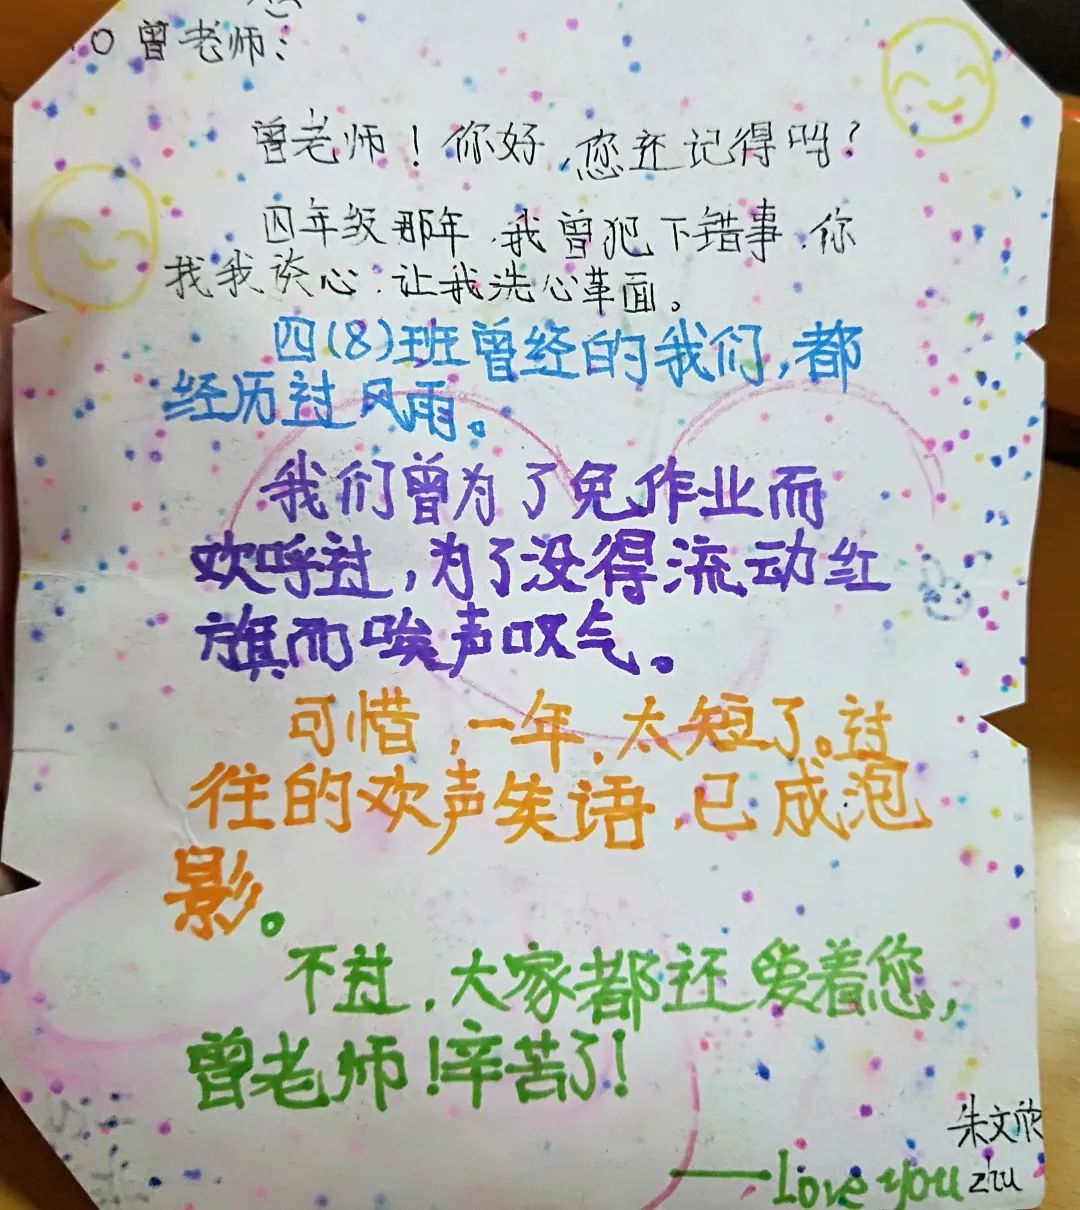 TO 曾老师：
曾老师！你好，您还记得吗？
四年级那年，我曾犯下错事，你
找我谈心，让我洗心革面。
四(8)班曾经的我们，都
经历过风雨。
我们曾为了免作业而
欢呼过，为了没得流动红
旗而唉声叹气。
可惜，一年，太短了。过
往的欢声笑语，已成泡
影。
不过，大家都还爱着您，
曾老师！辛苦了！
朱文欣
——Love you zhu